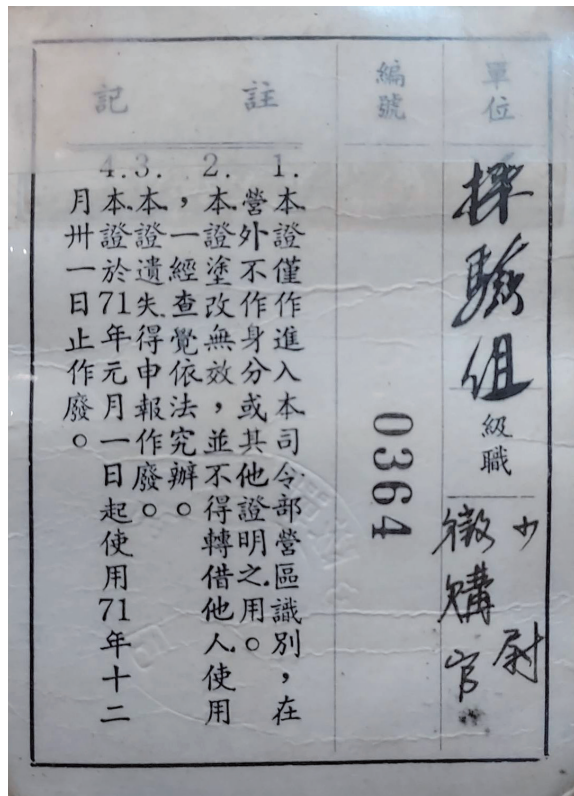 單位
驗組
級職
少尉
徵購官
編號
0364
註記
1.本證僅作進入本司令部營區識別，在
營外不作身分或其他證明之用。
2.本證塗改無效，並不得轉借他人使用
，一經查覺依法究辦。
3.本證遺失得申報作廢。
4.本證於71年元月一日起使用71年十二
月卅一日止作廢。